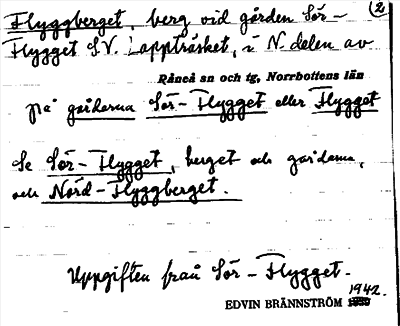 Flyggberget, berg vid gården Sör- (2
Flygget S.V. Lappträsket, i N. delen av
Råneå sn och tg, Norrbottens län
på gårdarna Sör-Flygget eller Flygget
Se Sör-Flygget, berget och gårdarna,
och Nord-Flyggberget.
Uppgiften från Sör-Flygget.
1942.
EDVIN BRÄNNSTRÖM 1939